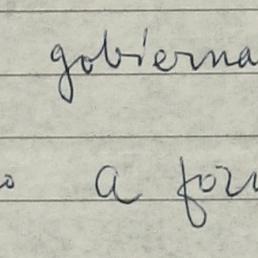 gobierna
a for